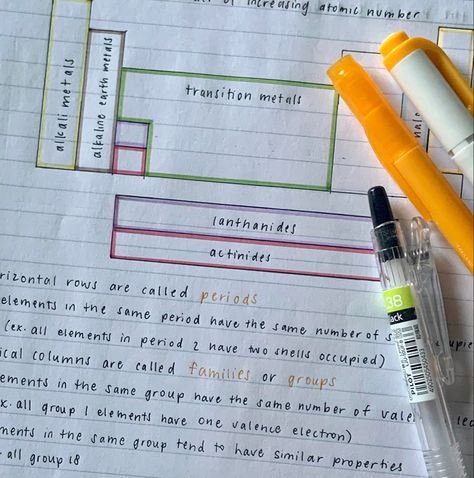 of increasing atomic number
alkali metals
alkaline earth metals
transition metals
lanthanides
actinides
rizontal rows are called periods
elements in the same period have the same number of s
upie
(ex. all elements in period 2 have two shells occupied)
ical columns are called families or groups
ements in the same group have the same number of vale
lec
x. all group 1 elements have one valence electron)
ments in the same group tend to have similar properties
all group 18
38
ack
PILOT